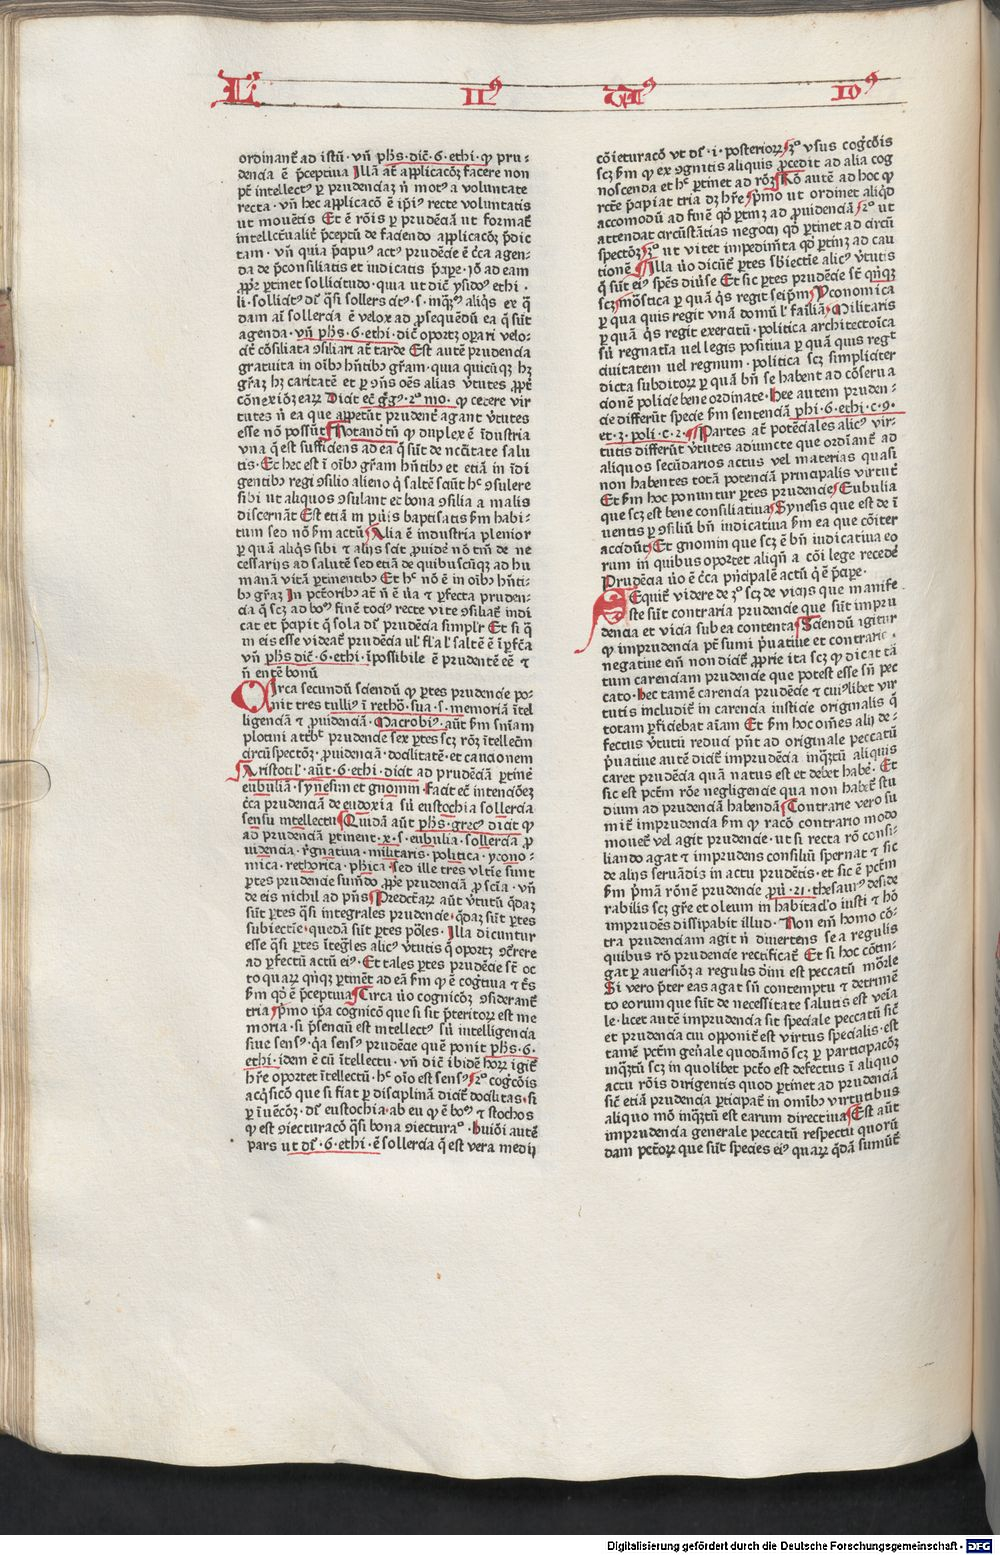 L. II⁹ T⁹ 10⁹
ordinant̄ ad istū · vn̄ ph̄s · dic̄ · 6 · ethi · ꝙ pru-
dencia ē p̄ceptiua Illā at̄ applicacōꝫ facere non
pt̄ intellect⁹ ꝑ prudenciaꝫ n̄ mot⁹ a voluntate
recta · vn̄ hec applicacō ē ip̄i⁹ recte voluntatis
ut mouētis Et ē rōis ꝑ prudēciā ut format̄
intellectualit̄ p̄ceptū de faciendo applicacōꝫ p̄dic
tam · vn̄ quia p̄apu⁹ act⁹ prudēcie ē c̄ca agen-
da de p̄consiliatis et iudicatis p̄ape · iō ad eam
ꝓp̄e ꝑtinet sollicitudo · quia ut dic̄ ysido⁹ ethi ·
li · sollicit⁹ dr̄ q̄si sollers cit⁹ · s · inq̄ꝫ⁹ aliq̄s ex q̄
dam ai sollercia ē velox ad ꝓsequēdū ea q̄ sūt
agenda · vn̄ ph̄s · 6 · ethi · dic̄ oportꝫ oꝑari velo-
cit̄ cōsiliata ↄsiliari at̄ tarde Est autē prudencia
gratuita in oīb⁹ hn̄tibꝰ gr̄am · qua quicūqꝫ hꝫ
gr̄aꝫ hꝫ caritatē et ꝑ ↄn̄s oēs alias v̄tutes ꝓpt̄
cōnexiōꝫ earꝝ Dicit ec̄ g̅g⁹ · 2⁰ mo · ꝙ cetere vir
tutes n̄ ea que appetūt prudent̄ agant v̄tutes
esse nō possūt Notandū tn̄ ꝙ duplex ē īdustria
vna q̄ est sufficiens ad ea q̄ sūt de nc̄citate salu
tis · Et hec est ī oīb⁹ gr̄am hn̄tibꝰ et etiā in īdi
gentibꝰ regi ↄsilio alieno q̄ saltē sciūt hc̄ ↄsulere
sibi ut aliquos ↄsulant et bona ↄsilia a malis
discernāt Est etiā in p̄uis baptisatis ẜm habi-
tum sed nō ẜm actū Alia ē industria plenior
ꝑ quā aliq̄s sibi ⁊ alijs scit ꝓuidē nō tm̄ de ne
cessarijs ad salutē sed etiā de quibuscūqꝫ ad hu
manā vitā ꝑtinentibꝰ Et hc̄ nō ē in oīb⁹ hn̄ti-
bꝰ gr̄aꝫ In pctōribꝰ at̄ n̄ ē ūa ⁊ ꝑfecta pruden-
cia q̄ scꝫ ad bo⁹ finē toci⁹ recte vite ↄsiliat̄ iudi
cat et p̄apit q̄ sola dr̄ prudēcia simplr̄ Et si q̄
in eis esse videat̄ prudēcia ul̄ fl̄a l̄ saltē ē īꝑfc̄a
vn̄ ph̄s dic̄ · 6 · ethi · īpossibile ē prudentē eē ⁊
n̄ entē bonū
Circa secundū sciendū ꝙ ꝑtes prudencie po-
nit tres tulli⁹ ī rethō · sua · s · memoriā ītel
ligenciā ⁊ ꝓuidenciā · Macrobi⁹ · aūt ẜm sn̄iam
plotini at̄bt̄ prudencie sex ꝑtes scꝫ rōꝫ ītellectū
circūspectōꝫ · ꝓuidenciā · docilitatē · et caucionem
Aristotil̄ · aūt · 6 · ethi · dicit ad prudēciā ꝑtinē
eubuliā · synesim et gnomin · facit ec̄ intenciōeꝫ
c̄ca prudenciā de eudoxia sū eustochia sollercia
sensu intellectu Quidā aūt ph̄s · grec⁹ dicit ꝙ
ad prudenciā ꝑtinent · x · s · eubulia · sollercia ꝓ
uidencia · r̄gnatiua · militaris · politica · ycono-
mica · rethorica · phica · sed ille tres vltīe sunt
ꝑtes prudencie sumēdo ꝓp̄e prudenciā ꝓ scīa · vn̄
de eis nichil ad pn̄s Predictarꝝ aūt v̄tutū q̄daꝫ
sūt ꝑtes q̄si integrales prudencie · q̄daꝫ sūt ꝑtes
subiectie · quedā sūt ꝑtes pōles · Illa dicuntur
esse q̄si ꝑtes ītegr̄les alic⁹ v̄tutis q̄ oportꝫ ↄc̄rere
ad ꝑfectū actū ei⁹ · Et tales ꝑtes prudēcie st̄ oc
to quarꝝ qn̄qꝫ ꝑtinēt ad eā ẜm ꝙ ē cog̅tiua ⁊ tr̄s
ẜm qd̄ ē p̄ceptiua Circa ūo cognicōꝫ ↄsiderant̄
tria p̄mo ip̄a cognicō que si sit p̄teritorꝝ est me
moria · si p̄senciū est intellect⁹ sū intelligencia
siue sens⁹ · q̄a sens⁹ prudēcie quē ponit ph̄s · 6 ·
ethi · idem ē cū ītellectu · vn̄ dic̄ ibidē horꝝ igit̄
hr̄e oportet ītellectū · hc̄ oīo est sens⁹ 2⁰ cog̅cōis
acq̄sicō que si fiat ꝑ disciplinā dicit̄ docilitas · si
ꝑ īuēcōꝫ · dr̄ eustochia · ab eu ꝙ ē bo⁹ ⁊ stochos
ꝙ est ↄiecturacō q̄si bona ↄiectura⁰ · huiōi autē
pars ut dr̄ · 6 · ethi · ē sollercia q̄ est vera medij
cōieturacō vt dr̄ · i · posteriorꝝ 3⁰ vsus cog̅cōis
scꝫ ẜm ꝙ ex ↄgnitis aliquis ꝓcedit ad alia cog
noscenda et hc̄ ꝑtinet ad rōꝫ Ad autē ad hoc ꝙ
rct̄e p̄apiat tria dꝫ hr̄e p̄mo ut ordinet aliq̄d
accomodū ad finē qd̄ ꝑtinꝫ ad ꝓuidenciā 2⁰ ut
attendat circūstātias negocij qd̄ ꝑtinet ad circū
spectōꝫ 3⁰ ut vitet impedimēta qd̄ ꝑtinꝫ ad cau
tionē Illa ūo dicūt̄ ꝑtes sb̄iectie alic⁹ v̄tutis
q̄ sūt ei⁹ spēs diūse Et sic ꝑtes prudēcie st̄ qn̄qꝫ
scꝫ mōstica ꝑ quā q̄s regit seip̄m Yconomica
ꝑ qua quis regit vnā domū l̄ familiā Militaris
ꝑ quā q̄s regit exercitū · politica architectoīca
sū regnatīa uel legis positiua ꝑ quā quis regt̄
ciuitatem uel regnum · politica scꝫ simpliciter
dicta subditorꝝ ꝑ quā bn̄ se habent ad cōserua
cionē policie bene ordinate · Hee autem pruden-
cie differūt specie ẜm sentenciā phi · 6 · ethi · c · 9 ·
et · 3 · poli · c · 2 · Partes at̄ potēciales alic⁹ vir-
tutis differūt v̄tutes adiuncte que ordinant̄ ad
aliquos secūdarios actus vel materias quasi
non habentes totā potenciā principalis virtut̄
Et ẜm hoc ponuntur ꝑtes prudencie Eubulia
que scꝫ est bene consiliatiua Synesis que est de ī
uentis ꝑ ↄsiliū bn̄ indicatiua ẜm ea que cōiter
accidūt Et gnomin que scꝫ ē bn̄ indicatiua eo
rum in quibus oportet aliqn̄ a cōi lege recedē
Prudēcia ūo ē c̄ca p̄ncipalē actū q̄ ē p̄cipe ·
Sequit̄ videre de 2⁰ scꝫ de vicijs que manife
ste sūt contraria prudencie que sūt impru
dencia et vicia sub ea contenta Sciendū igitur
ꝙ imprudencia pt̄ sumi p̄uatiue et contrarie ·
negatiue em̄ non dicit̄ ꝓprie ita scꝫ ꝙ dicat tā
tum carenciam prudencie que potest esse sn̄ pec
cato · hec tamē carencia prudēcie ⁊ cui⁹libet vir
tutis includit̄ in carencia iusticie originalis q̄
totam ꝑficiebat aīam Et ẜm hoc om̄es alij de-
fectus v̄tutū reduci pn̄t ad originale peccatū
p̄uatiue autē dicit̄ imprudēcia inq̄ꝫtū aliquis
caret prudēcia quā natus est et debet habē · Et
sic est pctm̄ rōe negligencie qua non habet stu
dium ad prudenciā habendā Contrarie vero su
mit̄ imprudencia ẜm ꝙ racō contrario modo
mouet̄ vel agit prudencie · ut si recta rō consi-
liando agat ⁊ imprudens consiliū spernat ⁊ sic
de alijs seruādis in actu prudētis · et sic ē pctm̄
ẜm p̄mā rōnē prudencie ꝓū · 21 · thesaur⁹ deside
rabilis scꝫ gr̄e et oleum in habitac̄lo iusti ⁊ hō
imprudēs dissipabit illud · Non em̄ homo cō-
tra prudenciam agit n̄ diuertens se a regulis
quibus rō prudencie rectificat̄ Et si hoc cōtin-
gat ꝑ auersiōꝫ a regulis diūi est peccatū mōrle
Si vero p̄ter eas agat sn̄ contemptu ⁊ detrimē
to eorum que sūt de necessitate salutis est veīa
le · licet autē imprudēcia sit speciale peccatū sic̄
et prudencia cui opponit̄ est virtus specialis · est
tamē pctm̄ gen̄ale quodāmō scꝫ ꝑ participacōꝫ
inq̄ꝫtū scꝫ in quolibet pctō est defectus ī aliquo
actu rōis dirigentis quod ꝑtinet ad prudenciā
sic̄ etiā prudencia ꝑticipat̄ in om̄ibꝰ virtutibus
aliquo mō inq̄ꝫtū est earum directiua Est aūt
imprudencia generale peccatū respectu quorū
dam pctōrꝝ que sūt species ei⁹ quarꝝ q̄dā sumūt̄
Digitalisierung gefördert durch die Deutsche Forschungsgemeinschaft - DFG